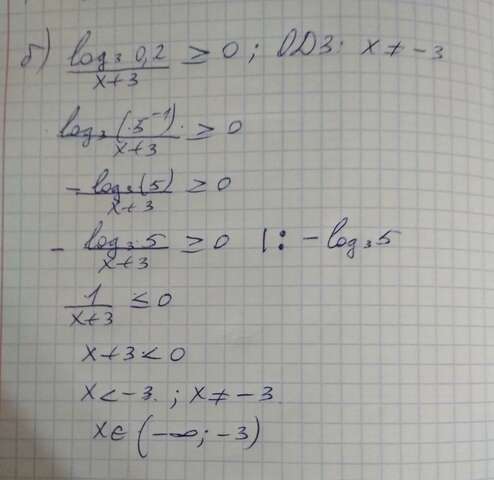 б) log₃ 0,2 / x+3 ≥ 0 ; ОДЗ: x ≠ -3
log₃ (5⁻¹) / x+3 ≥ 0
- log₃ (5) / x+3 ≥ 0
- log₃ 5 / x+3 ≥ 0 | : - log₃ 5
1 / x+3 ≤ 0
x+3 < 0
x < -3 ; x ≠ -3
x ∈ (-∞; -3)